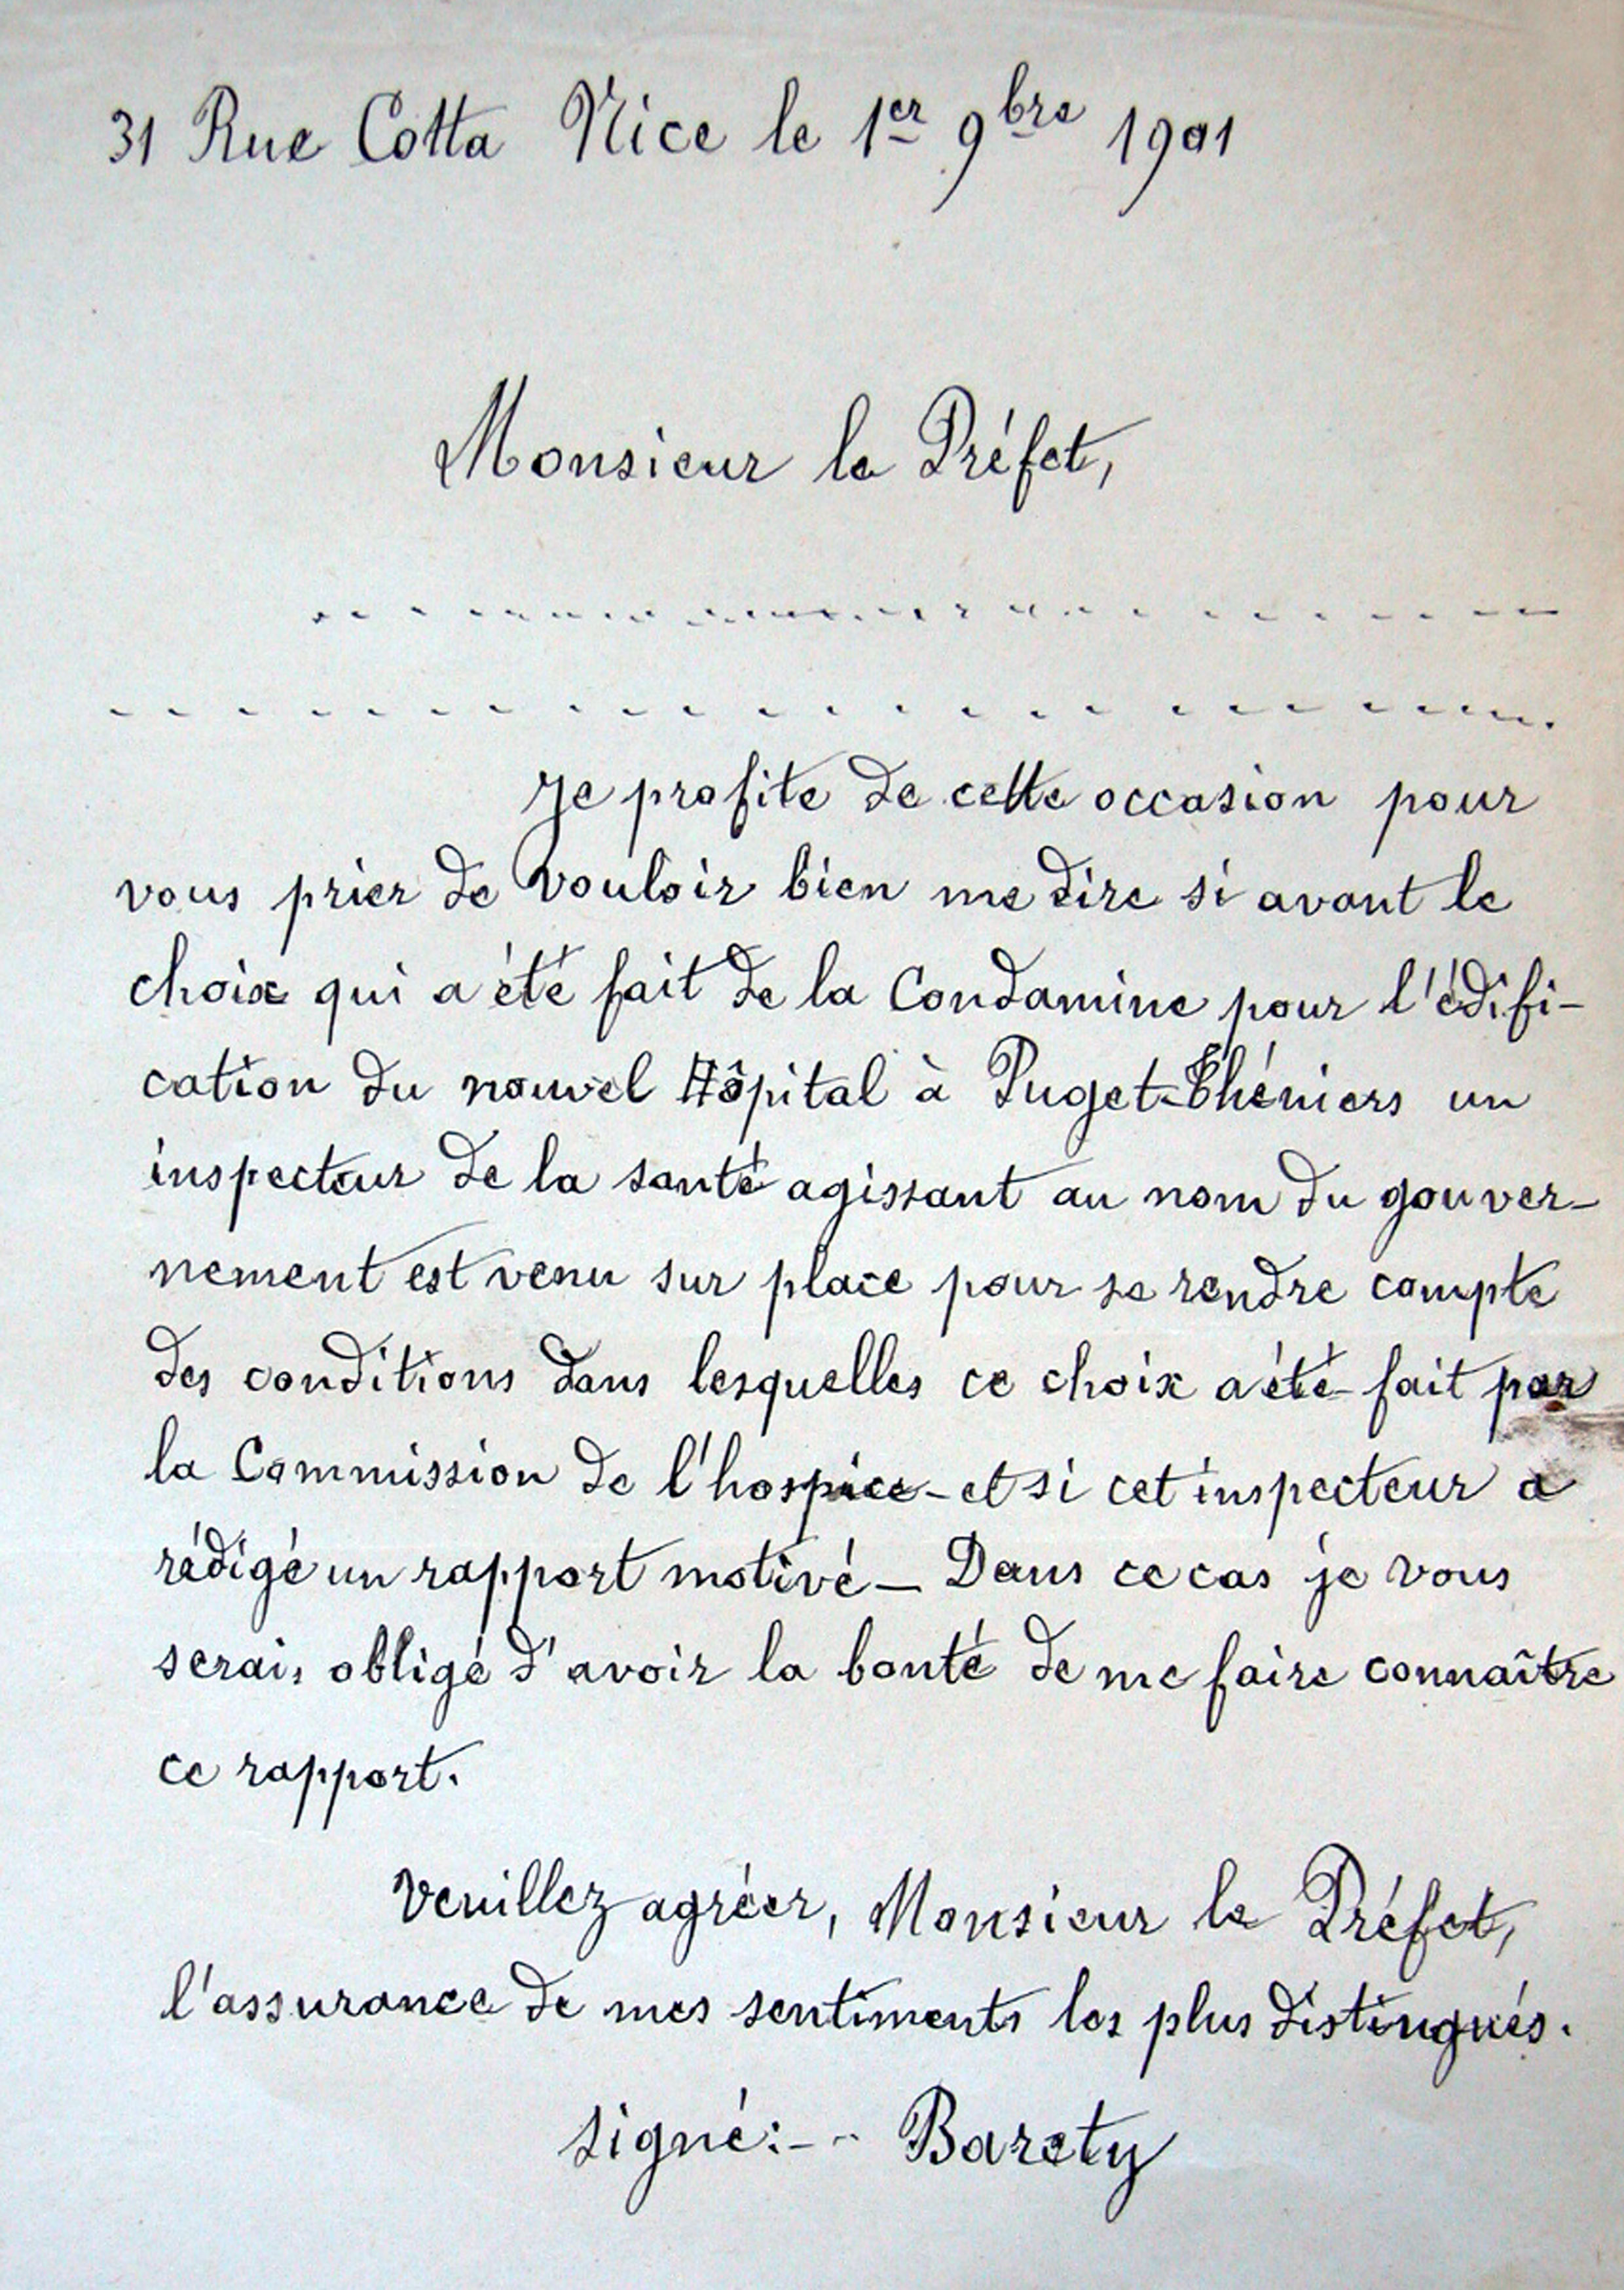 31 Rue Cotta Nice le 1er 9bre 1901
Monsieur le Préfet,
Je profite de cette occasion pour
vous prier de vouloir bien me dire si avant le
choix qui a été fait de la Condamine pour l'édifi-
cation du nouvel Hôpital à Puget-Théniers un
inspecteur de la santé agissant au nom du gouver-
nement est venu sur place pour se rendre compte
des conditions dans lesquelles ce choix a été fait par
la Commission de l'hospice - et si cet inspecteur a
rédigé un rapport motivé — Dans ce cas je vous
serais obligé d'avoir la bonté de me faire connaître
ce rapport.
Veuillez agréer, Monsieur le Préfet,
l'assurance de mes sentiments les plus distingués.
signé:-- Barety